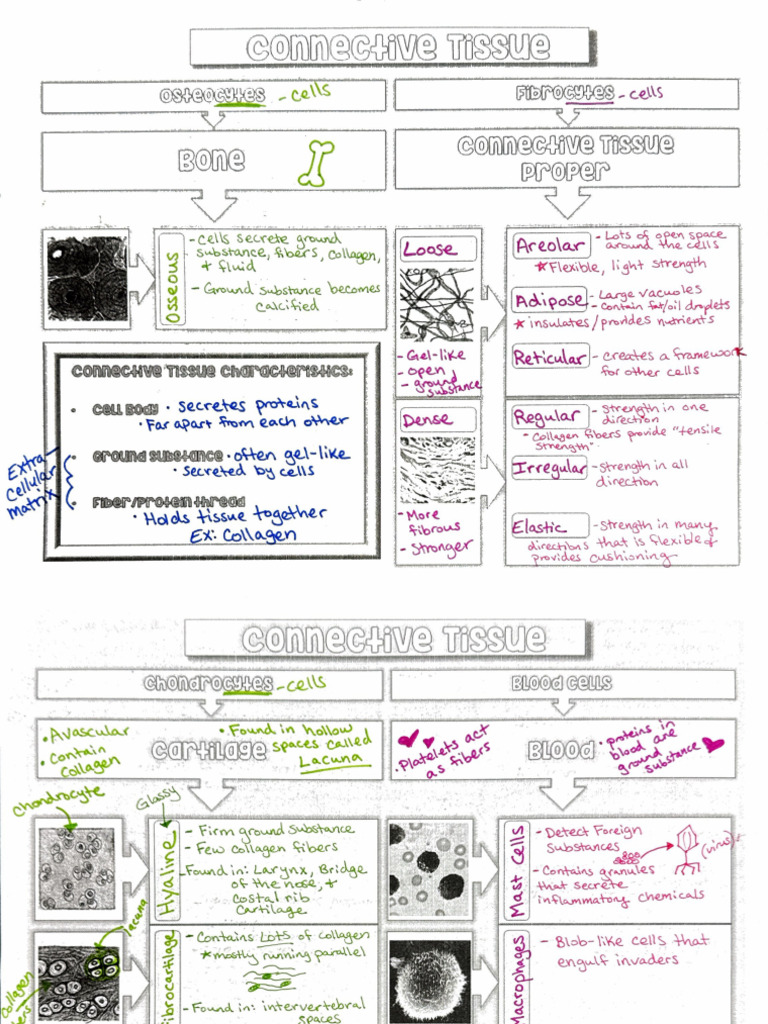 Connective Tissue
Osteocytes - cells
Fibrocytes - cells
Bone
Connective Tissue
Proper
Osseous
- cells secrete ground
substance, fibers, collagen,
+ fluid
- Ground substance becomes
calcified
Loose
- Gel-like
- open
- ground
substance
Areolar
- Lots of open space
around the cells
★Flexible, light strength
Adipose
- Large vacuoles
- contain fat/oil droplets
★ insulates/provides nutrients
Reticular
- creates a framework
for other cells
Connective Tissue Characteristics:
• Cell Body • secretes proteins
• Far apart from each other
• Ground substance • often gel-like
• secreted by cells
• Fiber/Protein thread
• Holds tissue together
Ex: Collagen
Extra-
cellular
matrix
Dense
- More
fibrous
- Stronger
Regular
- Strength in one
direction
- Collagen fibers provide "tensile
strength"
Irregular
- strength in all
direction
Elastic
- Strength in many
directions that is flexible &
provides cushioning
Connective Tissue
Chondrocytes - cells
Blood Cells
• Avascular
• Contain
Collagen
Cartilage
• Found in hollow
spaces called
Lacuna
• Platelets act
as fibers
Blood
• proteins in
blood are
ground
substance
chondrocyte
Glassy
Hyaline
- Firm ground substance
- Few collagen fibers
- Found in: Larynx, Bridge
of the nose, +
costal rib
cartilage
Mast Cells
- Detect Foreign
Substances
(virus)
- Contains granules
that secrete
inflammatory chemicals
lacuna
collagen
Fibrocartilage
- Contains LOTS of collagen
★mostly running parallel
- Found in: intervertebral
spaces
Macrophages
- Blob-like cells that
engulf invaders